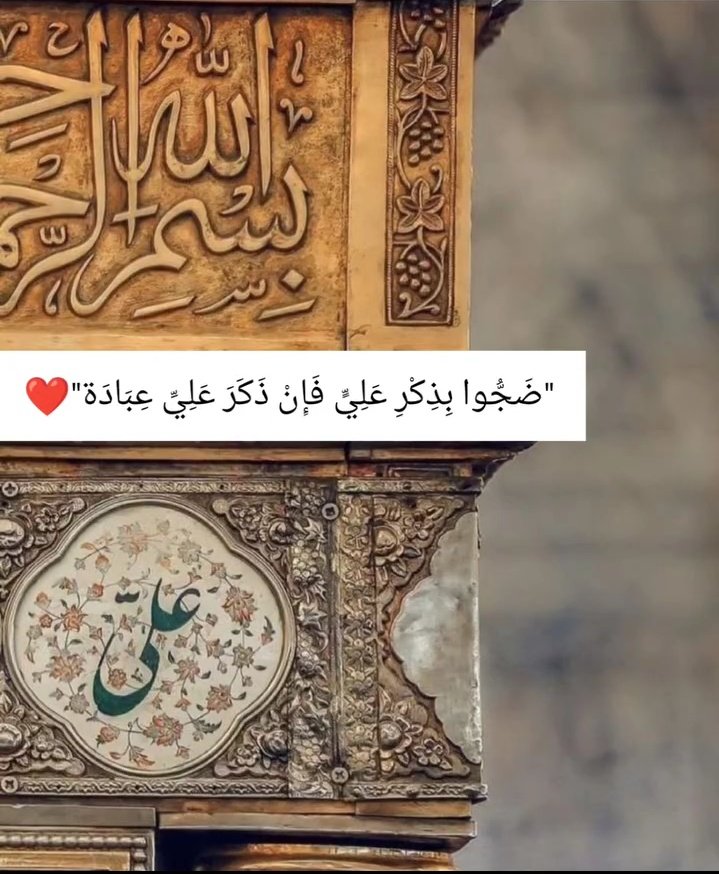 بِسْمِ اللّٰهِ الرَّحْمٰ
"ضَجُّوا بِذِكْرِ عَلِيٍّ فَإِنْ ذَكَرَ عَلِيِّ عِبَادَة"❤️
علیّ